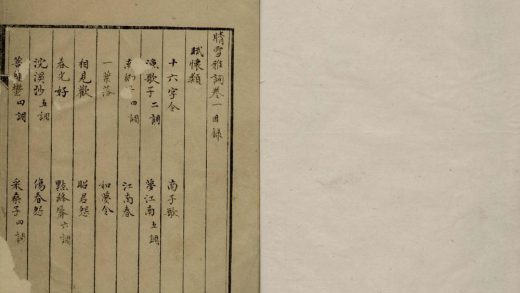 晴雪雅詞卷一目錄
賦懷類
十六字令 南子歌
漁歌子二調 夢江南五調
四調 江南春
一葉落 如夢令
相見歡 昭君怨
春光好 點絳唇六調
浣溪沙五調 傷春怨
菩薩蠻四調 采桑子四調